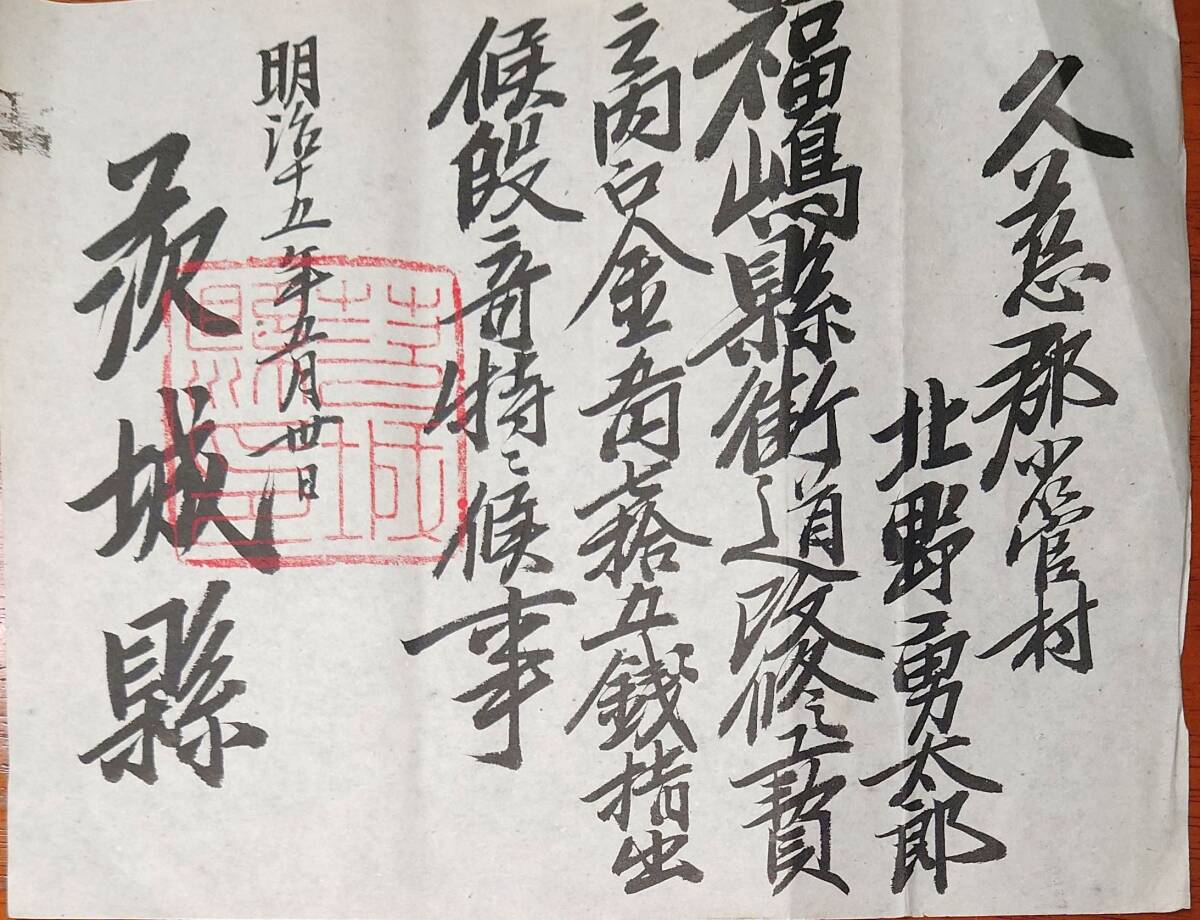 久慈郡小菅村
北野勇太郎
福嶋縣街道改修工費
之内金拾五錢指出
候段奇特ニ候事
明治十五年五月卅日
茨城縣
茨城縣印